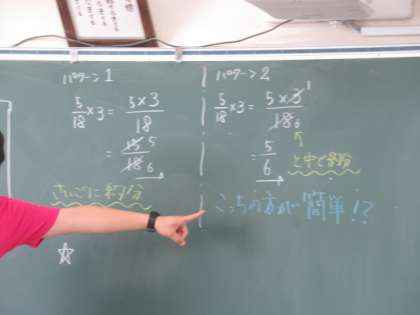 パターン1
5/18×3=5×3/18
=15/18 5/6
さいごに約分
パターン2
5/18×3=5×3/18 1 6
=5/6
と中で約分
こっちの方が簡単!?